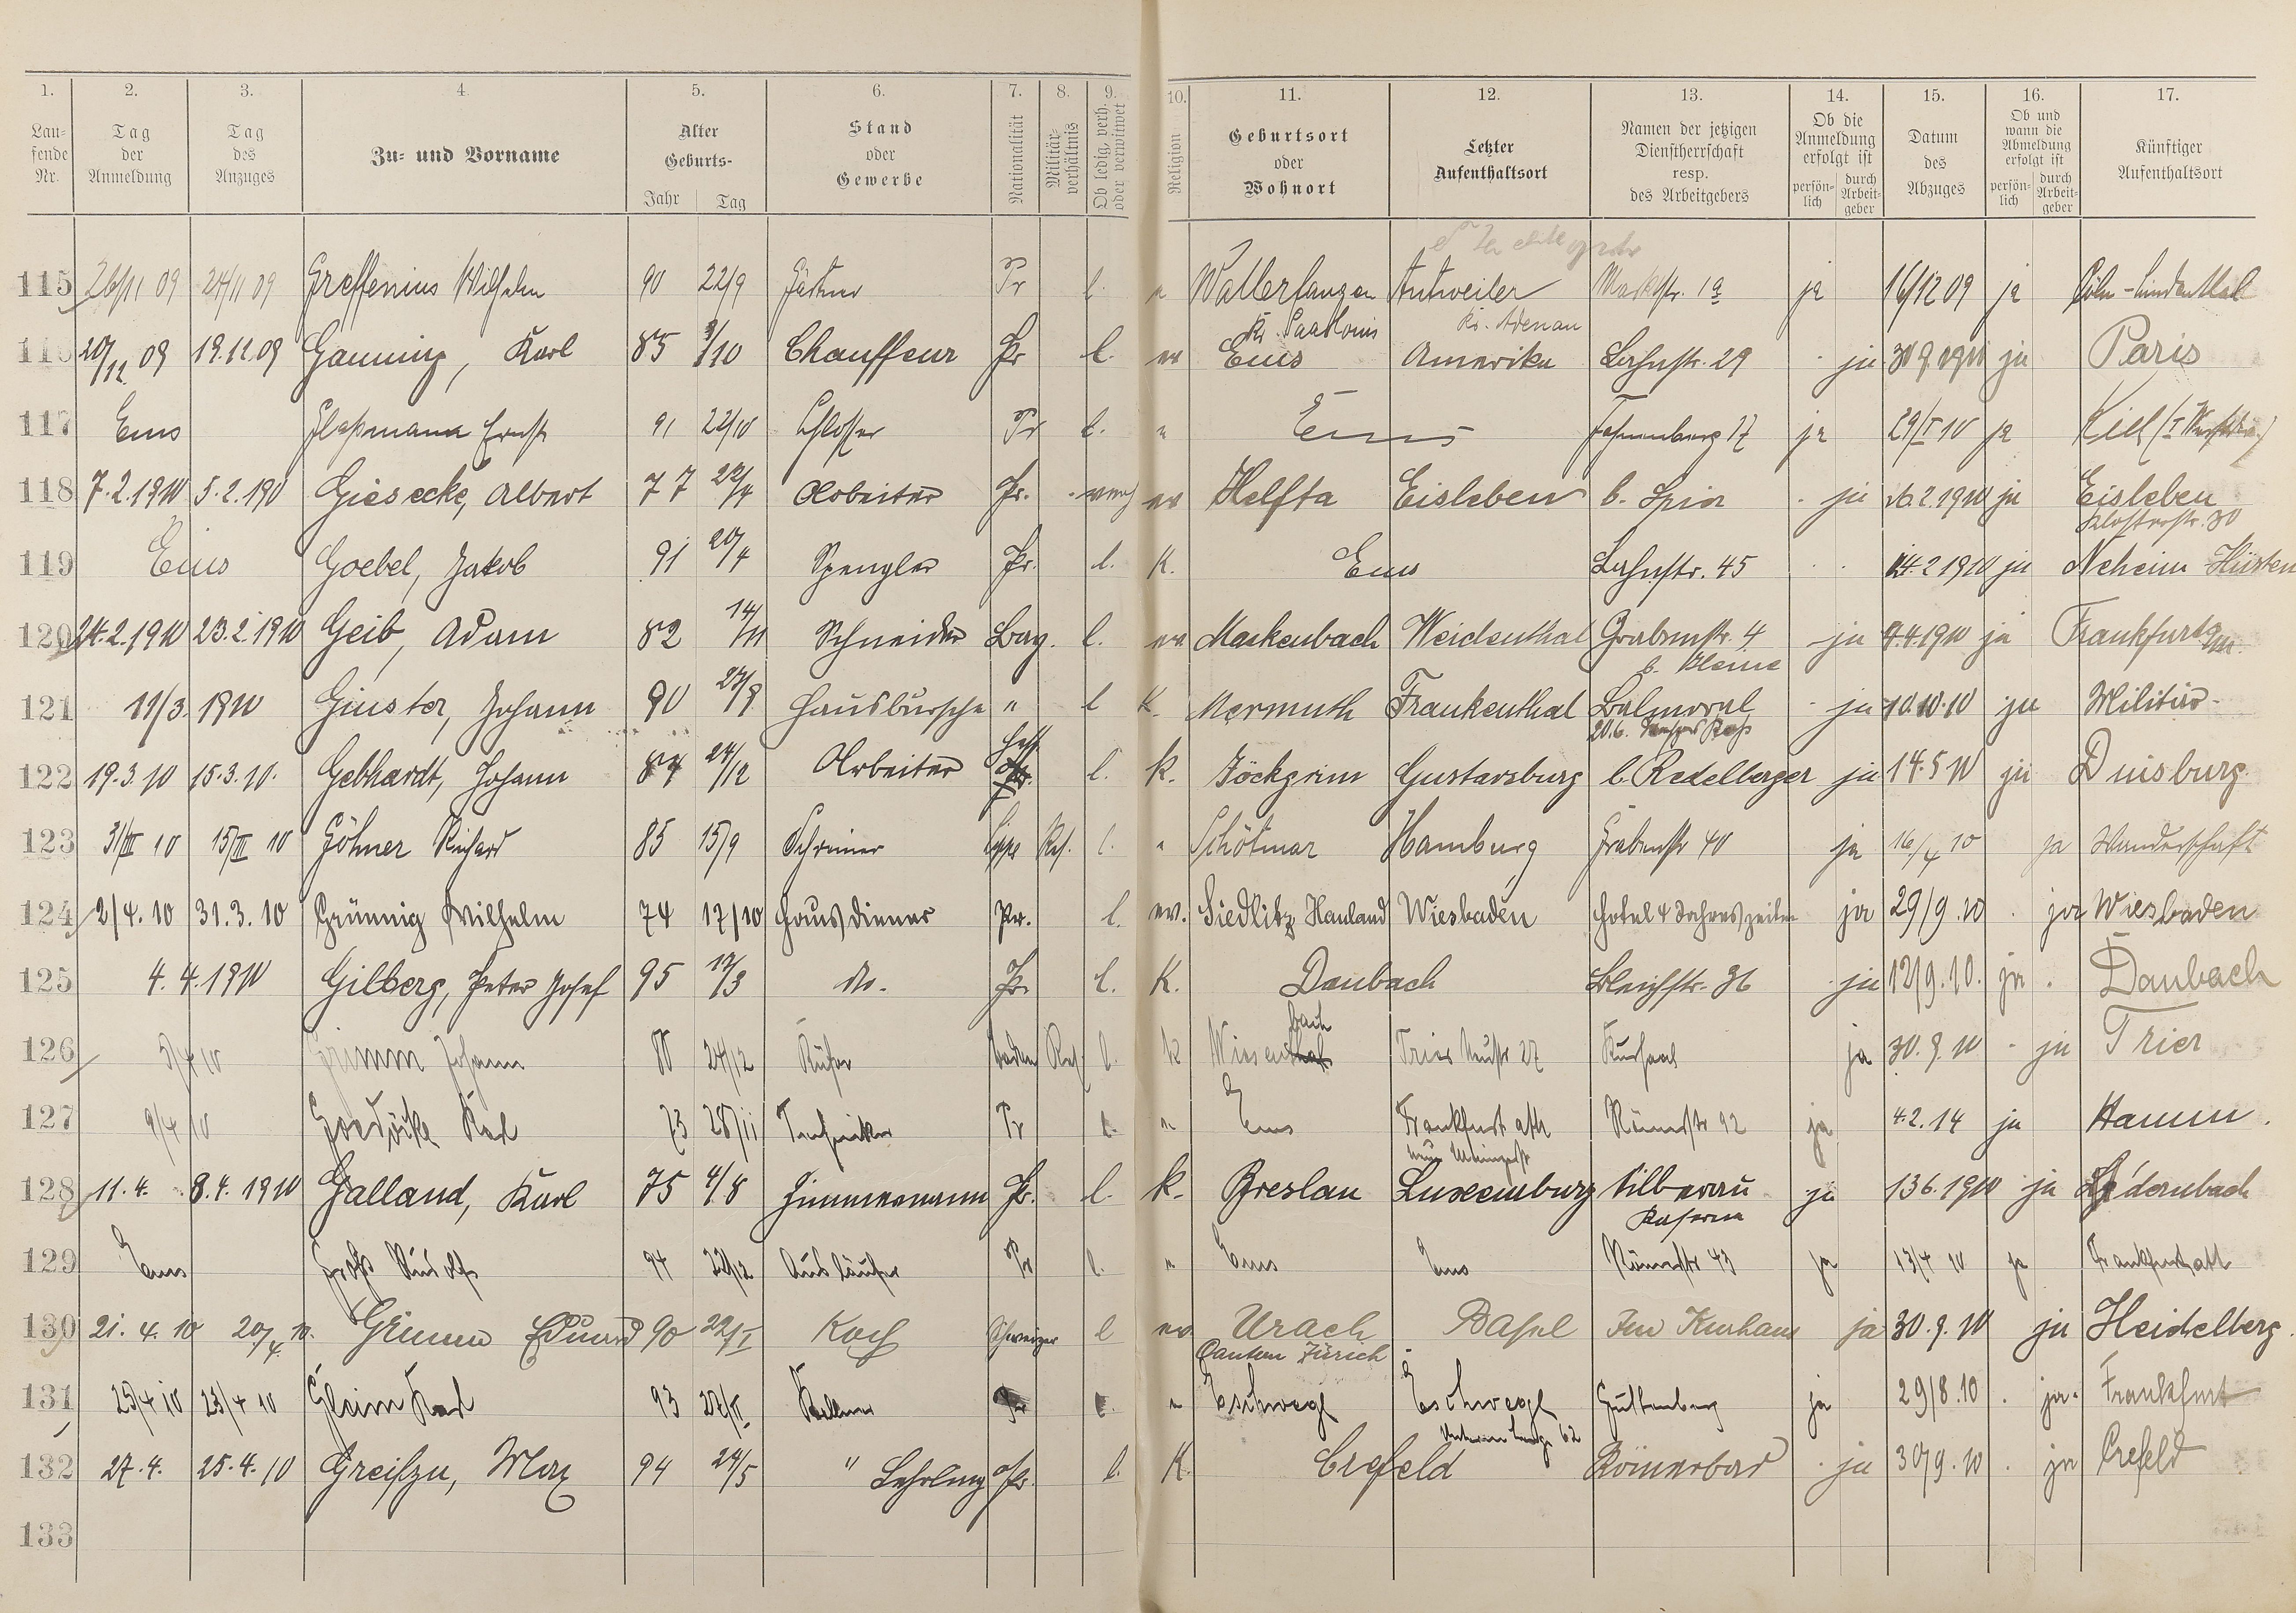 1. 2. 3. 4. 5. 6. 7. 8. 9. 10. 11. 12. 13. 14. 15. 16. 17.
Lau-fende Nr. | Tag der Anmeldung | Tag des Anzuges | Zu- und Vorname | Alter Geburts- Jahr Tag | Stand oder Gewerbe | Nationalität | Militär-verhältnis | Ob ledig, verh. oder verwitwet | Religion | Geburtsort oder Wohnort | Letzter Aufenthaltsort | Namen der jetzigen Dienstherrschaft resp. des Arbeitgebers | Ob die Anmeldung erfolgt ist persön-lich durch Arbeit-geber | Datum des Abzuges | Ob und wann die Abmeldung erfolgt ist persön-lich durch Arbeit-geber | Künftiger Aufenthaltsort
115 26/11 09 24/11 09 Greffenius Wilhelm 90 22/9 Pr l. " Wallerfangen Kr. Saarlouis Antweiler Kr. Adenau Marktstr. 1a ja 16/12 09 ja Cöln-Lindenthal
116 20/12 09 19.12.09 Gauning, Karl 85 3/10 Chauffeur Pr l. ev Ems Amerika Lahnstr. 29 ja ja Paris
117 Ems Ernst 91 22/10 Schlosser Pr l. " Ems 17 ja 29/I 10 ja Kiel
118 7.2.1910 5.2.190 Giesecke, Albert 77 22/4 Arbeiter Pr. ev Helfta Eisleben b. Spier ja 16.2.1910 ja Eisleben Klosterstr. 30
119 Ems Goebel, Jakob 91 20/4 Spengler Pr. l. K. Ems Lahnstr. 45 14.2 1910 ja Neheim Hüsten
120 24.2.1910 23.2.1910 Geib, Adam 82 14/III Schneider Bay. l. ev Mackenbach Weidenthal Grabenstr. 4 b. Kleine ja 4.4.1910 ja Frankfurt a/M.
121 11/3. 1910 Ginster, Johann 90 27/9 Hausbursche " l K. Mermuth Frankenthal Balmoral ja 10.10.10 ja Militär-
122 19.3.10 15.3.10. Gebhardt, Johann 84 24/12 Arbeiter Hess l. K. Jöckgrim Gustavsburg b. Redelberger ja 14.5 10 ja Duisburg.
123 31/III 10 15/III 10 Göhner Richard 85 15/9 Schreiner Lippe Res. l. " Schötmar Hamburg Grabenstr 40 ja 16/4 10 ja Wanderschaft
124 2/4.10 31.3.10 Grünnig Wilhelm 74 17/10 Hausdiener Pr. l. ev. Siedlitz Hauland Wiesbaden Hotel 4 Jahreszeiten ja 29/9.10 ja Wiesbaden
125 4.4.1910 Gilberg, Peter Josef 95 17/3 do. Pr. l. K. Daubach Bleichstr. 36 ja 12/9.10. ja. Daubach
126 5/4 10 Grimm Johann 80 24/12 Küfer Baden Res. l. K Wiesenbach Trier 27 Kursaal ja 30.9.10 ja Trier
127 9/4 10 Karl 73 28/11 Techniker Pr l " Ems Frankfurt a/M Römerstr 92 ja 4.2.14 ja Hamm.
128 11.4. 8.4.1910 Galland, Karl 75 4/8 Zimmermann Pr. l. k. Breslau Luxemburg Silberau Kaserne ja 13 6.1910 ja
129 Ems Groß Rudolf 94 22/12 Ausläufer Pr l. " Ems Ems Römerstr 43 ja 13/4 10 ja Frankfurt a/M
130 21.4.10 20/4 10. Grimm Eduard 90 22/I Koch Schweizer l ev Urach Canton Zürich Basel Im Kurhaus ja 30.9.10 ja Heidelberg.
131 25/4 10 23/4 10 Gleim Karl 93 Kellner Pr l. " Eschwege Eschwege 62 Guttenberg ja 29/8.10 ja. Frankfurt
132 27.4. 25.4.10 Greißzu, Max 94 24/5 " Lehrling Pr. l. K. Crefeld Römerbad ja 30/9.10 ja Crefeld
133